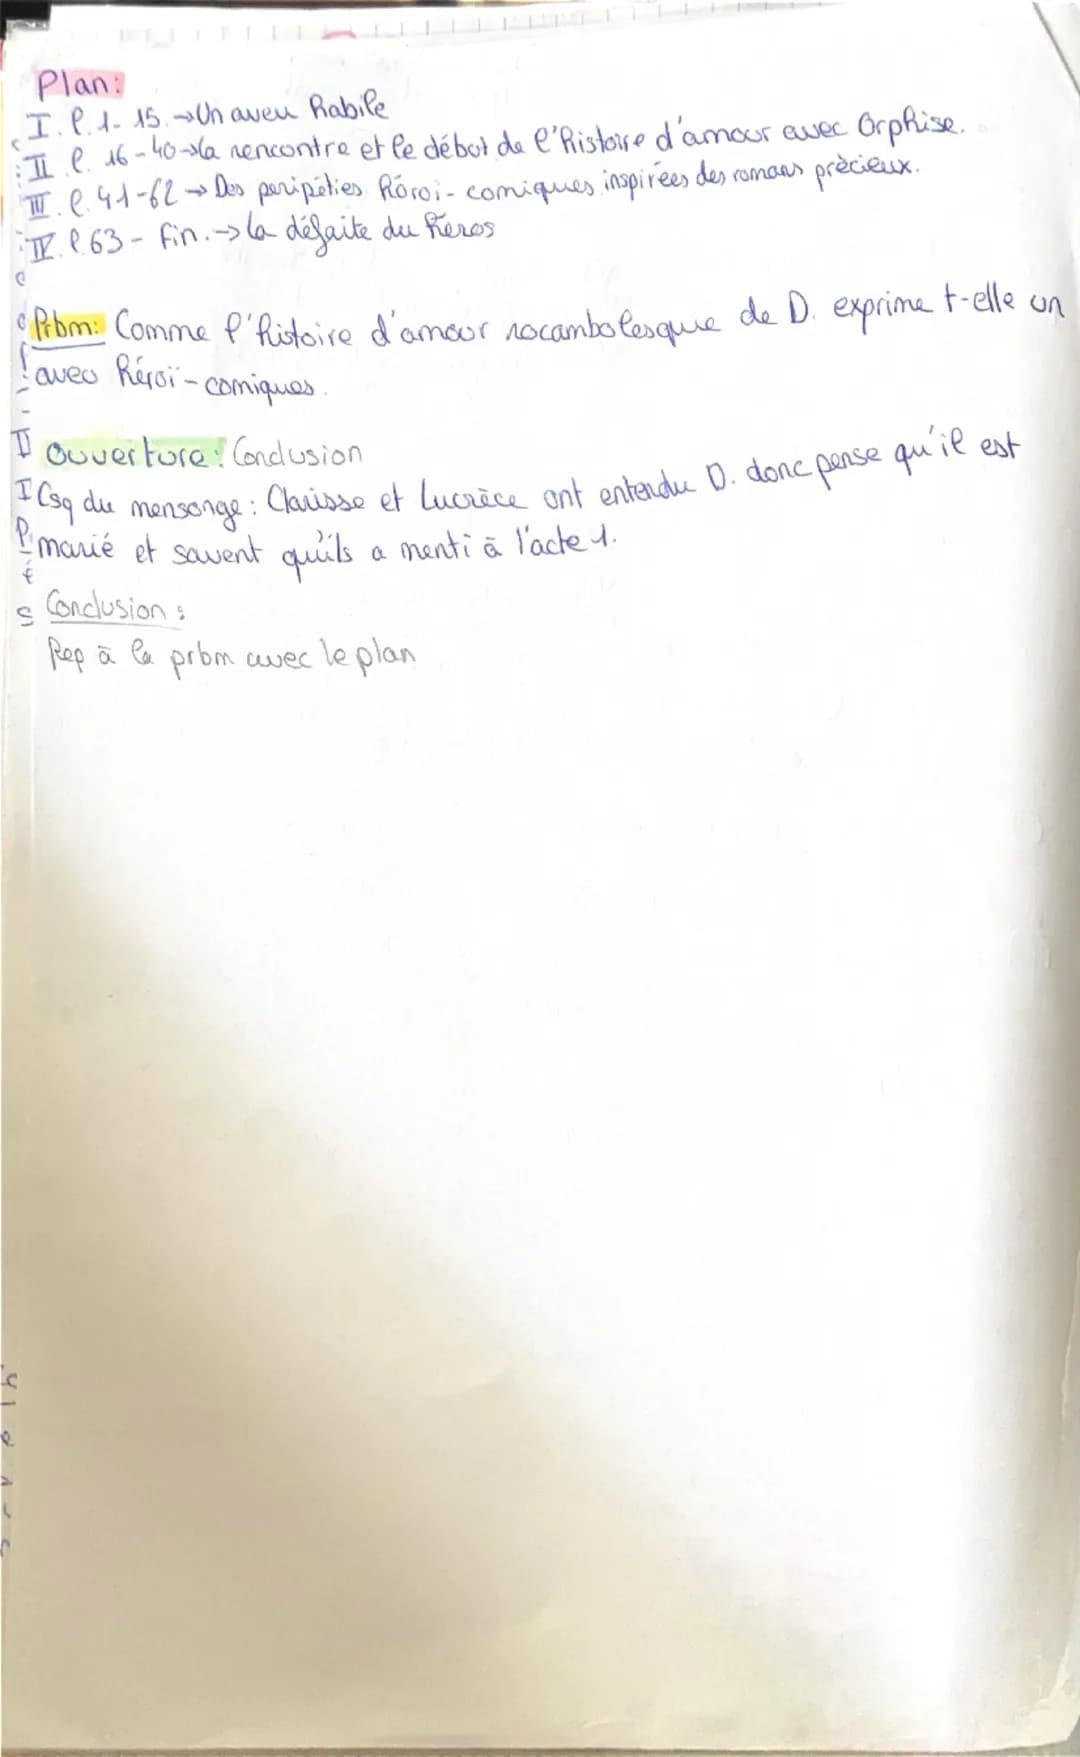 Plan:
I. l. 1- 15. → Un aveu habile
II. l. 16-40 → la rencontre et le début de l'histoire d'amour avec Orphise.
III. l. 41-62 → Des peripéties héroi-comiques inspirées des romans précieux.
IV. l. 63 - fin. → la défaite du heros
Prbm: Comme l'histoire d'amour rocambolesque de D. exprime t-elle un
aveu héroï-comiques.
Ouverture: Conclusion
Csq du mensonge: Clarisse et Lucrèce ont entendu D. donc pense qu'il est
marié et savent qu'ils a menti à l'acte 1.
Conclusion:
Rep à la prbm avec le plan